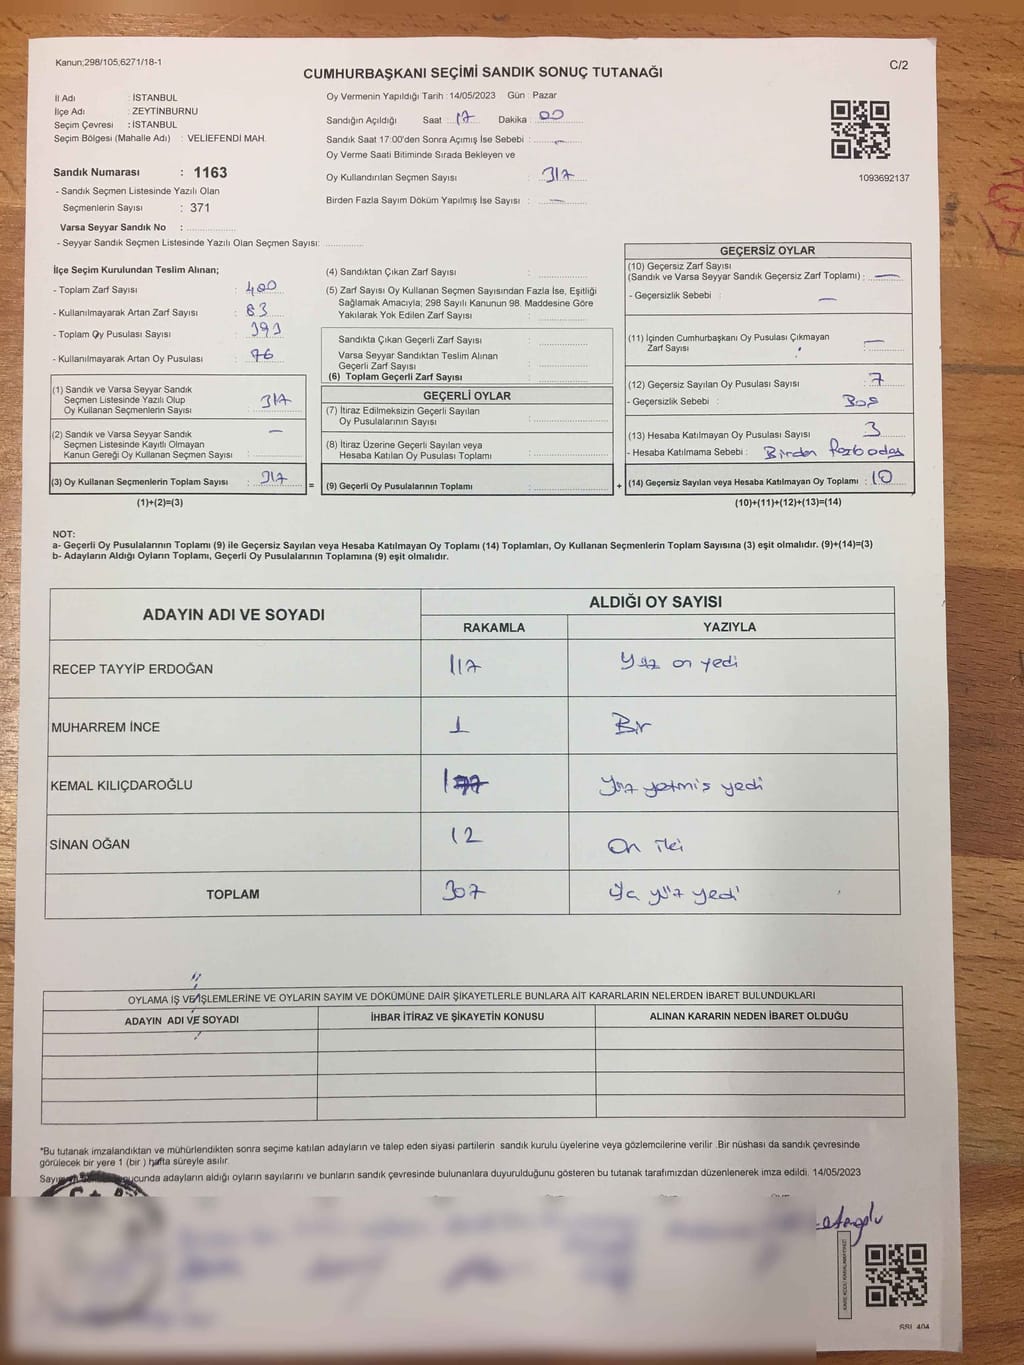 Kanun;298/105;6271/18-1
C/2
CUMHURBAŞKANI SEÇİMİ SANDIK SONUÇ TUTANAĞI
İl Adı : İSTANBUL
İlçe Adı : ZEYTİNBURNU
Seçim Çevresi : İSTANBUL
Seçim Bölgesi (Mahalle Adı) : VELİEFENDİ MAH.
Sandık Numarası : 1163
- Sandık Seçmen Listesinde Yazılı Olan
Seçmenlerin Sayısı : 371
Varsa Seyyar Sandık No :
- Seyyar Sandık Seçmen Listesinde Yazılı Olan Seçmen Sayısı:
Oy Vermenin Yapıldığı Tarih : 14/05/2023 Gün : Pazar
Sandığın Açıldığı Saat : 17 Dakika : 00
Sandık Saat 17:00'den Sonra Açımış İse Sebebi : -
Oy Verme Saati Bitiminde Sırada Bekleyen ve
Oy Kullandırılan Seçmen Sayısı : 317
Birden Fazla Sayım Döküm Yapılmış İse Sayısı : -
1093692137
İlçe Seçim Kurulundan Teslim Alınan;
- Toplam Zarf Sayısı : 400
- Kullanılmayarak Artan Zarf Sayısı : 83
- Toplam Oy Pusulası Sayısı : 393
- Kullanılmayarak Artan Oy Pusulası : 76
(1) Sandık ve Varsa Seyyar Sandık
Seçmen Listesinde Yazılı Olup
Oy Kullanan Seçmenlerin Sayısı : 317
(2) Sandık ve Varsa Seyyar Sandık
Seçmen Listesinde Kayıtlı Olmayan
Kanun Gereği Oy Kullanan Seçmen Sayısı : -
(3) Oy Kullanan Seçmenlerin Toplam Sayısı : 317
(1)+(2)=(3)
(4) Sandıktan Çıkan Zarf Sayısı :
(5) Zarf Sayısı Oy Kullanan Seçmen Sayısından Fazla İse, Eşitliği
Sağlamak Amacıyla; 298 Sayılı Kanunun 98. Maddesine Göre
Yakılarak Yok Edilen Zarf Sayısı :
Sandıkta Çıkan Geçerli Zarf Sayısı :
Varsa Seyyar Sandıktan Teslim Alınan
Geçerli Zarf Sayısı :
(6) Toplam Geçerli Zarf Sayısı :
GEÇERLİ OYLAR
(7) İtiraz Edilmeksizin Geçerli Sayılan
Oy Pusulalarının Sayısı :
(8) İtiraz Üzerine Geçerli Sayılan veya
Hesaba Katılan Oy Pusulası Toplamı :
= (9) Geçerli Oy Pusulalarının Toplamı :
GEÇERSİZ OYLAR
(10) Geçersiz Zarf Sayısı
(Sandık ve Varsa Seyyar Sandık Geçersiz Zarf Toplamı) : -
- Geçersizlik Sebebi : -
(11) İçinden Cumhurbaşkanı Oy Pusulası Çıkmayan
Zarf Sayısı : -
(12) Geçersiz Sayılan Oy Pusulası Sayısı : 7
- Geçersizlik Sebebi : Boş
(13) Hesaba Katılmayan Oy Pusulası Sayısı : 3
- Hesaba Katılmama Sebebi : Birden
+ (14) Geçersiz Sayılan veya Hesaba Katılmayan Oy Toplamı : 10
(10)+(11)+(12)+(13)=(14)
NOT:
a- Geçerli Oy Pusulalarının Toplamı (9) ile Geçersiz Sayılan veya Hesaba Katılmayan Oy Toplamı (14) Toplamları, Oy Kullanan Seçmenlerin Toplam Sayısına (3) eşit olmalıdır. (9)+(14)=(3)
b- Adayların Aldığı Oyların Toplamı, Geçerli Oy Pusulalarının Toplamına (9) eşit olmalıdır.
ADAYIN ADI VE SOYADI
ALDIĞI OY SAYISI
RAKAMLA YAZIYLA
RECEP TAYYİP ERDOĞAN 117 Yüz on yedi
MUHARREM İNCE 1 Bir
KEMAL KILIÇDAROĞLU 177 Yüz yetmiş yedi
SİNAN OĞAN 12 On iki
TOPLAM 307 yüz yedi
OYLAMA İŞ VE İŞLEMLERİNE VE OYLARIN SAYIM VE DÖKÜMÜNE DAİR ŞİKAYETLERLE BUNLARA AİT KARARLARIN NELERDEN İBARET BULUNDUKLARI
ADAYIN ADI VE SOYADI İHBAR İTİRAZ VE ŞİKAYETİN KONUSU ALINAN KARARIN NEDEN İBARET OLDUĞU
*Bu tutanak imzalandıktan ve mühürlendikten sonra seçime katılan adayların ve talep eden siyasi partilerin sandık kurulu üyelerine veya gözlemcilerine verilir .Bir nüshası da sandık çevresinde
görülecek bir yere 1 (bir ) hafta süreyle asılır.
adayların aldığı oyların sayılarını ve bunların sandık çevresinde bulunanlara duyurulduğunu gösteren bu tutanak tarafımızdan düzenlenerek imza edildi. 14/05/2023